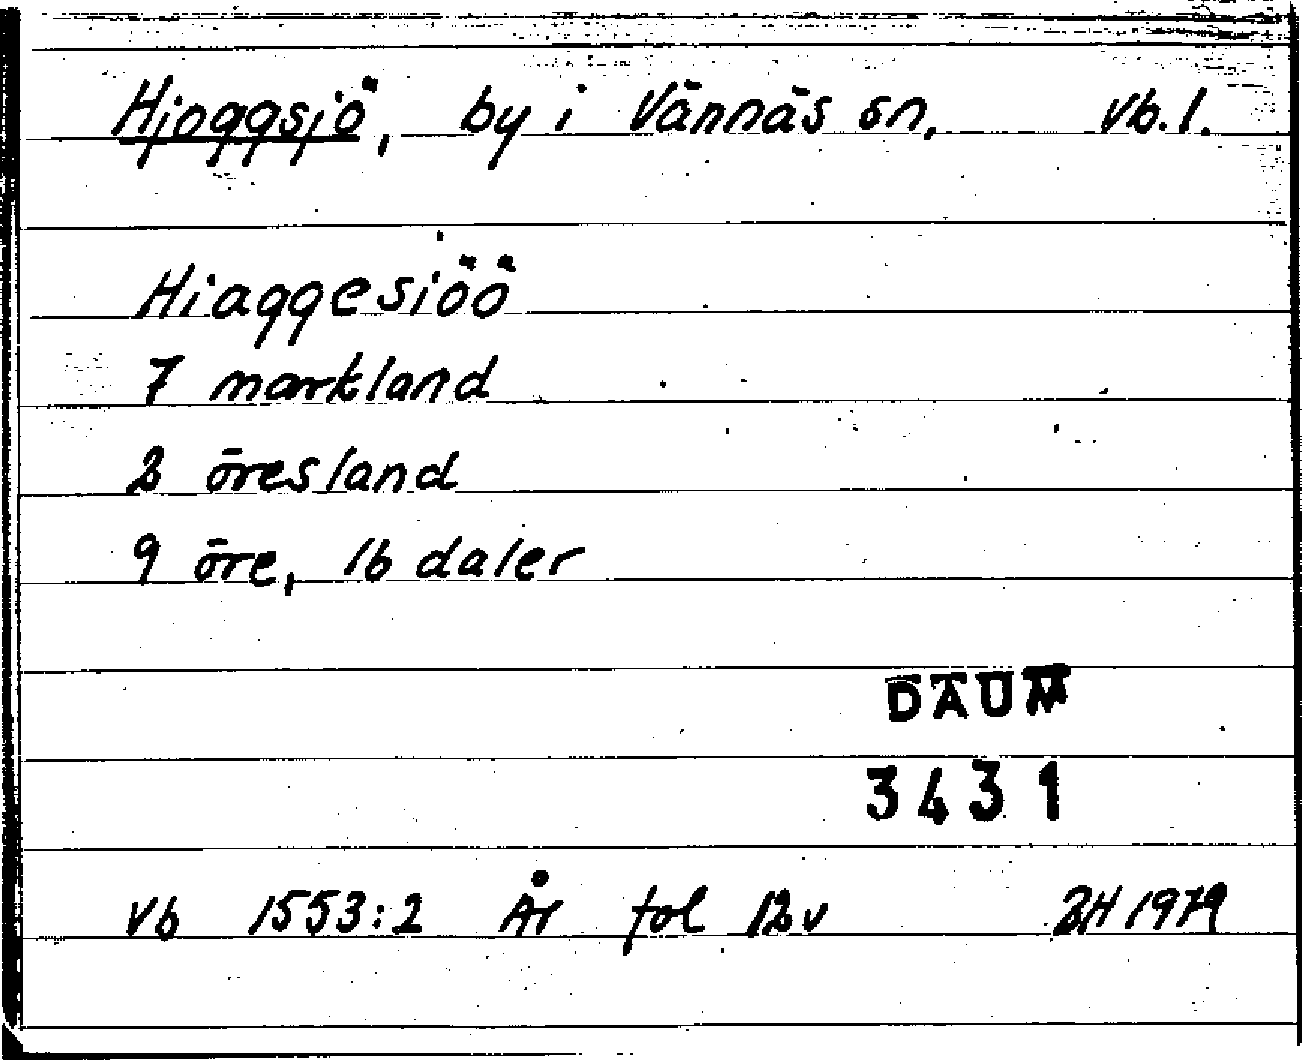 Hjoggsjö, by i Vännäs sn, Vb. l.
Hiaggesiöö
7 markland
2 öresland
9 öre, 16 daler
DAUM
3431
Vb 1553:2 År fol 12v BH 1979